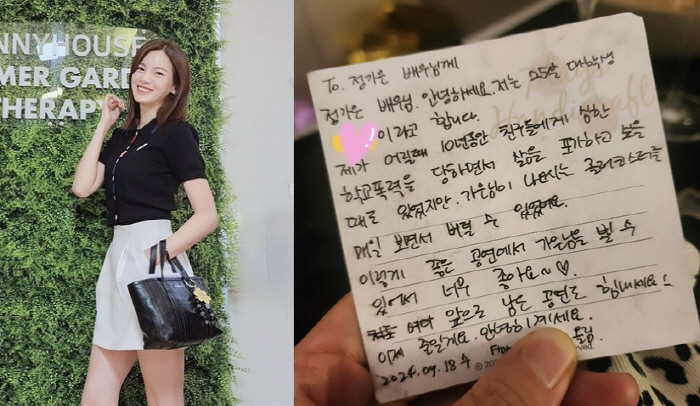 NNYHOUSE
MER GARD
THERAPY
To. 정가은 배우님께
정가은 배우님. 안녕하세요. 저는 25살 대학생
이라고 합니다.
제가 어릴때 10년동안 친구들에게 심한
학교폭력을 당하면서 삶을 포기하고 싶을
때도 있었지만. 가은님이 나오시는 롤러코스터를
매일 보면서 버틸 수 있었어요.
이렇게 좋은 공연에서 가은님을 뵐 수
있어서 너무 좋아요~ ♡.
앞으로 남은 공연도 힘내세요
이제 줄일게요. 안녕히계세요.
2024. 09. 18 수 올림